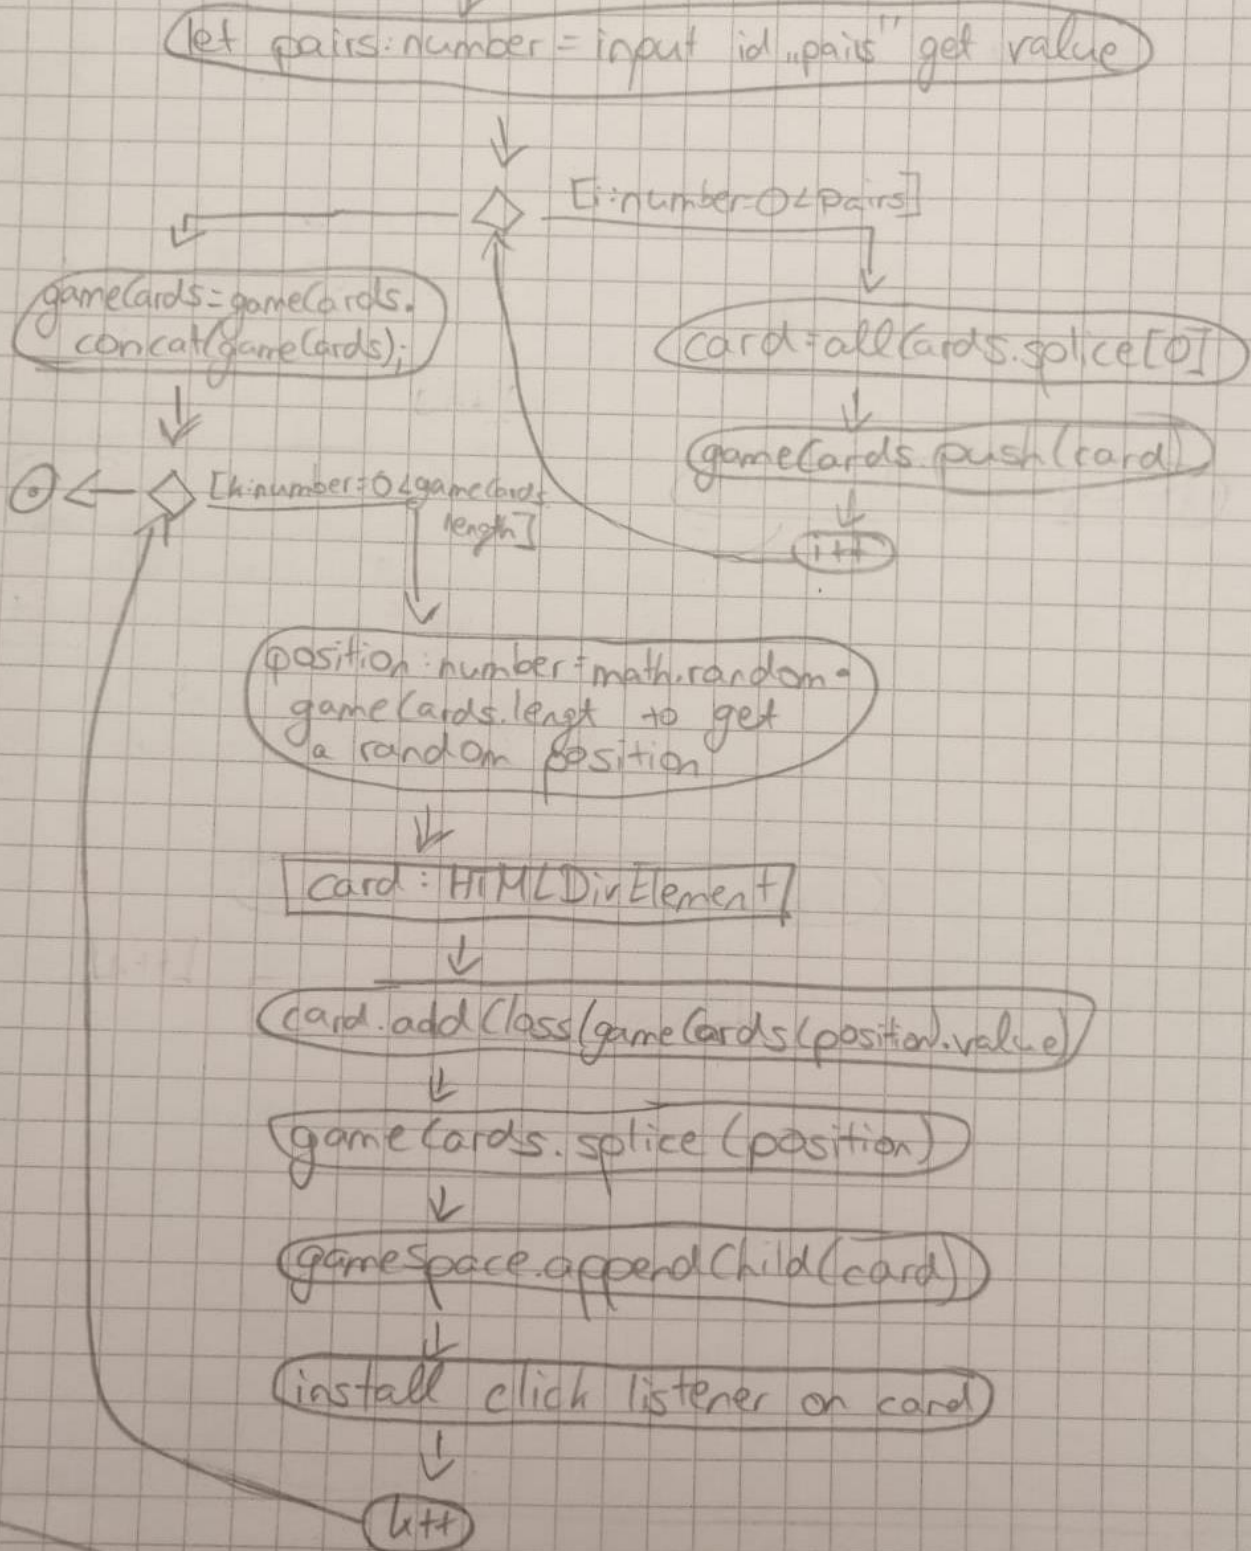 let pairs:number = input id „pairs" get value
[i:number=0<pairs]
gameCards=gameCards.
concat(gameCards);
card=allCards.splice[0]
gameCards.push(card)
i++
[k:number=0<gameCards.
length]
position:number=math.random·
gameCards.lengt to get
a random position
card:HTMLDivElement
card.addClass(gameCards(position).value)
gameCards.splice(position)
gameSpace.appendChild(card)
install click listener on card
k++